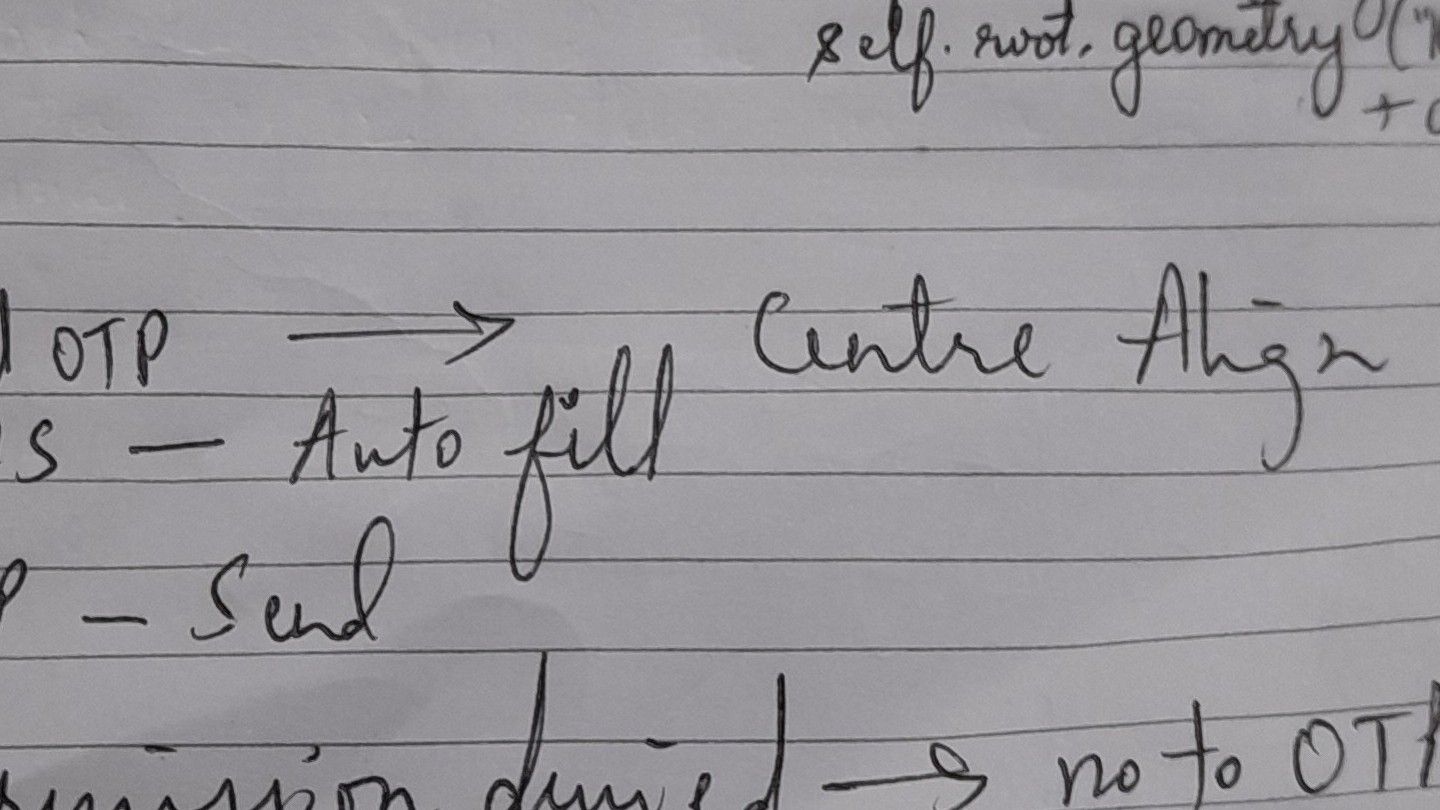 self.root.geometry(
+
OTP → Centre Align
s — Auto fill
P — Send
denied → no to OTP